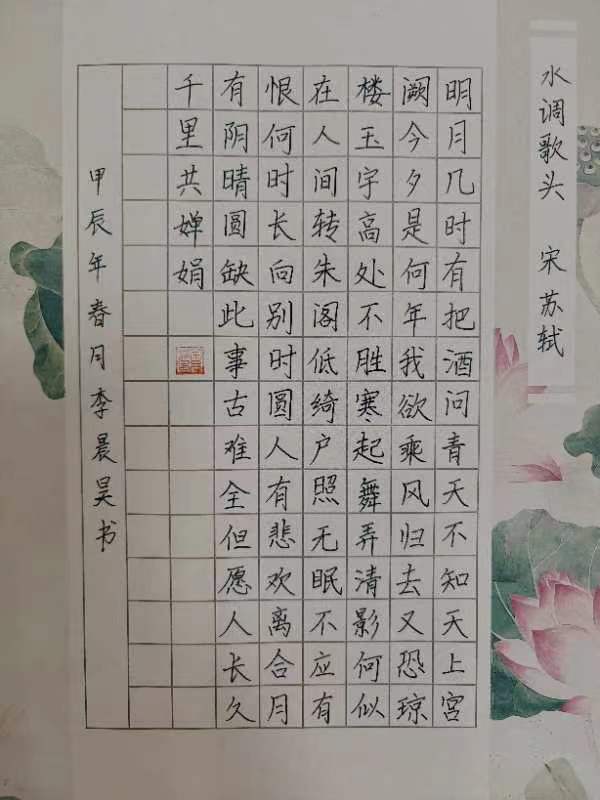 水调歌头 宋 苏轼
明月几时有把酒问青天不知天上宫
阙今夕是何年我欲乘风归去又恐琼
楼玉宇高处不胜寒起舞弄清影何似
在人间转朱阁低绮户照无眠不应有
恨何时长向别时圆人有悲欢离合月
有阴晴圆缺此事古难全但愿人长久
千里共婵娟
甲辰年春月李晨昊书